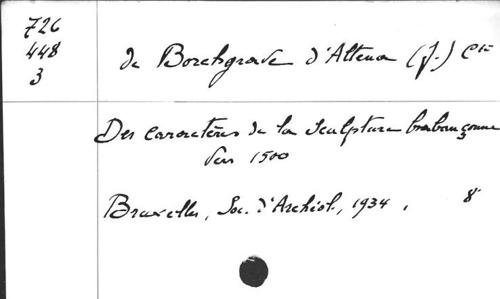 726
448
3
de Borchgrave d'Altena (J.) Cte
Des caractères de la sculpture brabançonne
vers 1500
Bruxelles, Soc. d'Archéol., 1934, 8°